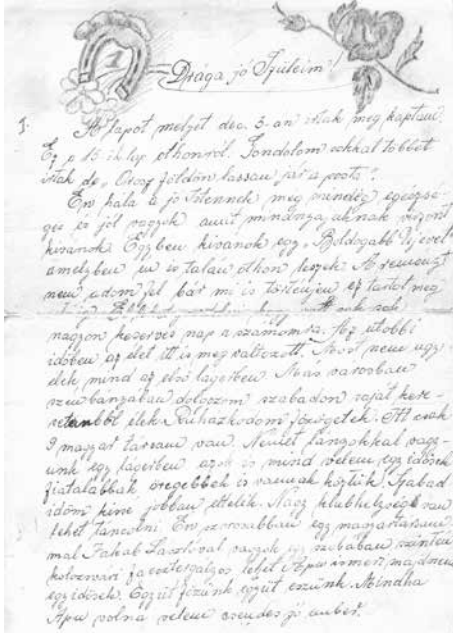 1
Drága jó Szüleim!
A lapot melyet dec. 3.-án írtak meg kaptam.
Ez a 15 ik lap othonról. Gondolom sokkal többet
írtak de „Orosz földön lassan jár a posta".
Én hála a jó Istennek még mindég egészsé-
ges és jól vagyok amit mindnyájuknak viszont
kívánok. Egyben kívánok egy „Boldogabb Újévet"
amelyben én is talán othon leszek. A reményt
nem adom fel bár mi is történjen ez tartot meg
sok
nagyon keserves nap a számomra. Az utóbbi
időben az élet itt is meg változott. Most nem úgy
élek mind az első lágerben. Más városban
szénbányában dolgozom szabadon saját kere-
setemből élek Ruházkodom főzögetek. Itt csak
9 magyar társam van. Német lányokkal vagy-
unk egy lágerben azok is mind velem egy idősek
fiatalabbak öregebbek is vannak köztük. Szabad
időm kéne jobban ítélik. Nagy klubhelyiség van
lehet táncolni. Én szorosabban egy magyartársam-
mal Jakab Lászlóval vagyok egy szobában szintén
kolozsvári faesztergályos lehet Apu ismeri majdnem
egyidősek. Együt főzünk együt eszünk. Mindha
Apu volna velem csendes jó ember.